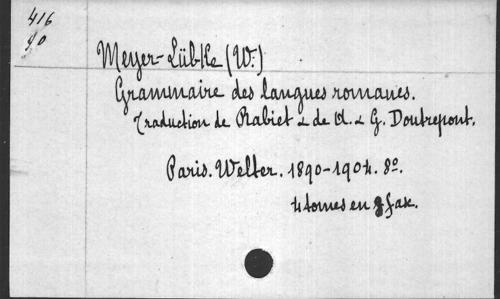 416
40
Meyer-Lübke (W.)
Grammaire des langues romanes.
Traduction de Rabiet & de A. & G. Doutrepont.
Paris. Welter. 1890-1904. 8º.
4 tomes en fax.